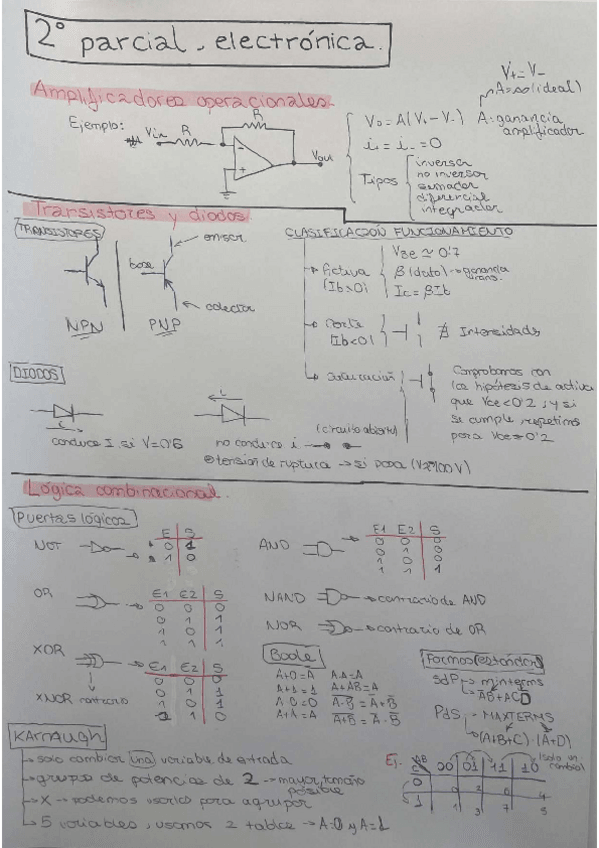 2º parcial. electrónica.
Amplificadores operacionales.
Ejemplo:
Vin R
R
Vout
V+ = V-
(A=∞(ideal))
Vo = A(V+ - V-) A: ganancia amplificador
i+ = i- = 0
Tipos
inversor
no inversor
sumador
diferencial
integrador
Transistores y diodos
TRANSISTORES
NPN
emisor
base
colector
PNP
CLASIFICACIÓN FUNCIONAMIENTO
Activa
(Ib>0)
VBE ≃ 0'7
β (dato) → ganancia trans.
Ic = βIb
Corte
Ib<0
∄ Intensidades
Saturación
Comprobamos con
las hipótesis de activa
que Vce<0'2, y si
se cumple repetimos
para Vce=0'2
DIODOS
conduce I si V=0'6
no conduce i
(circuito abierto)
tensión de ruptura → si pasa
Lógica combinacional.
Puertas lógicas
NOT
E S
0 1
1 0
AND
E1 E2 S
0 0 0
0 1 0
1 0 0
1 1 1
OR
E1 E2 S
0 0 0
0 1 1
1 0 1
1 1 1
NAND → contrario de AND
NOR → contrario de OR
XOR
XNOR contrario
E1 E2 S
0 0 0
0 1 1
1 0 1
1 1 0
Boole
A+0=A A·A=A
A+1=1 A+AB=A
A·0=0
A+A=A
Formas (estándar)
SdP → minterms
PdS → MAXTERMS
(A+B+C)·(A+D)
KARNAUGH
→ solo cambiar una variable de entrada
→ grupos de potencias de 2 → mayor tamaño posible
→ X → podemos usarlos para agrupar
→ 5 variables, usamos 2 tablas → A=0 y A=1
Ej.
AB
C
00 01 11 10
(solo un cambio)
0
1